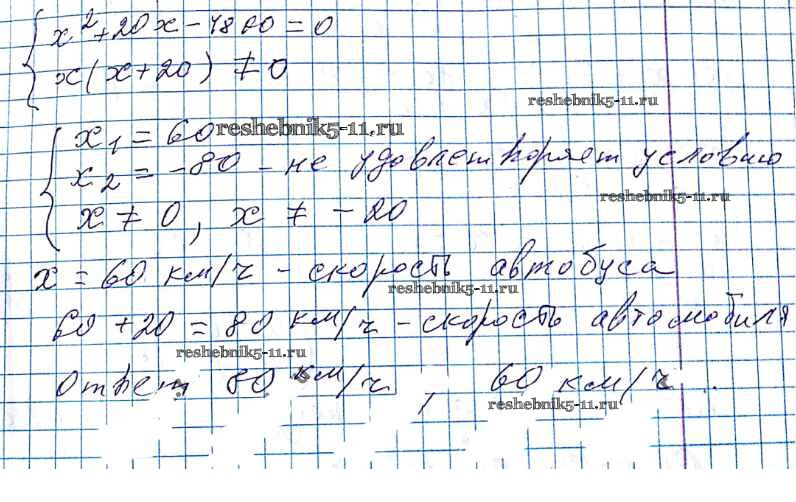 x² + 20x - 4800 = 0
x(x+20) ≠ 0
reshebnik5-11.ru
x₁ = 60
reshebnik5-11.ru
x₂ = -80 - не удовлетворяет условию
reshebnik5-11.ru
x ≠ 0, x ≠ -20
x = 60 км/ч - скорость автобуса
reshebnik5-11.ru
60 + 20 = 80 км/ч - скорость автомобиля
reshebnik5-11.ru
Ответ 80 км/ч, 60 км/ч.
reshebnik5-11.ru